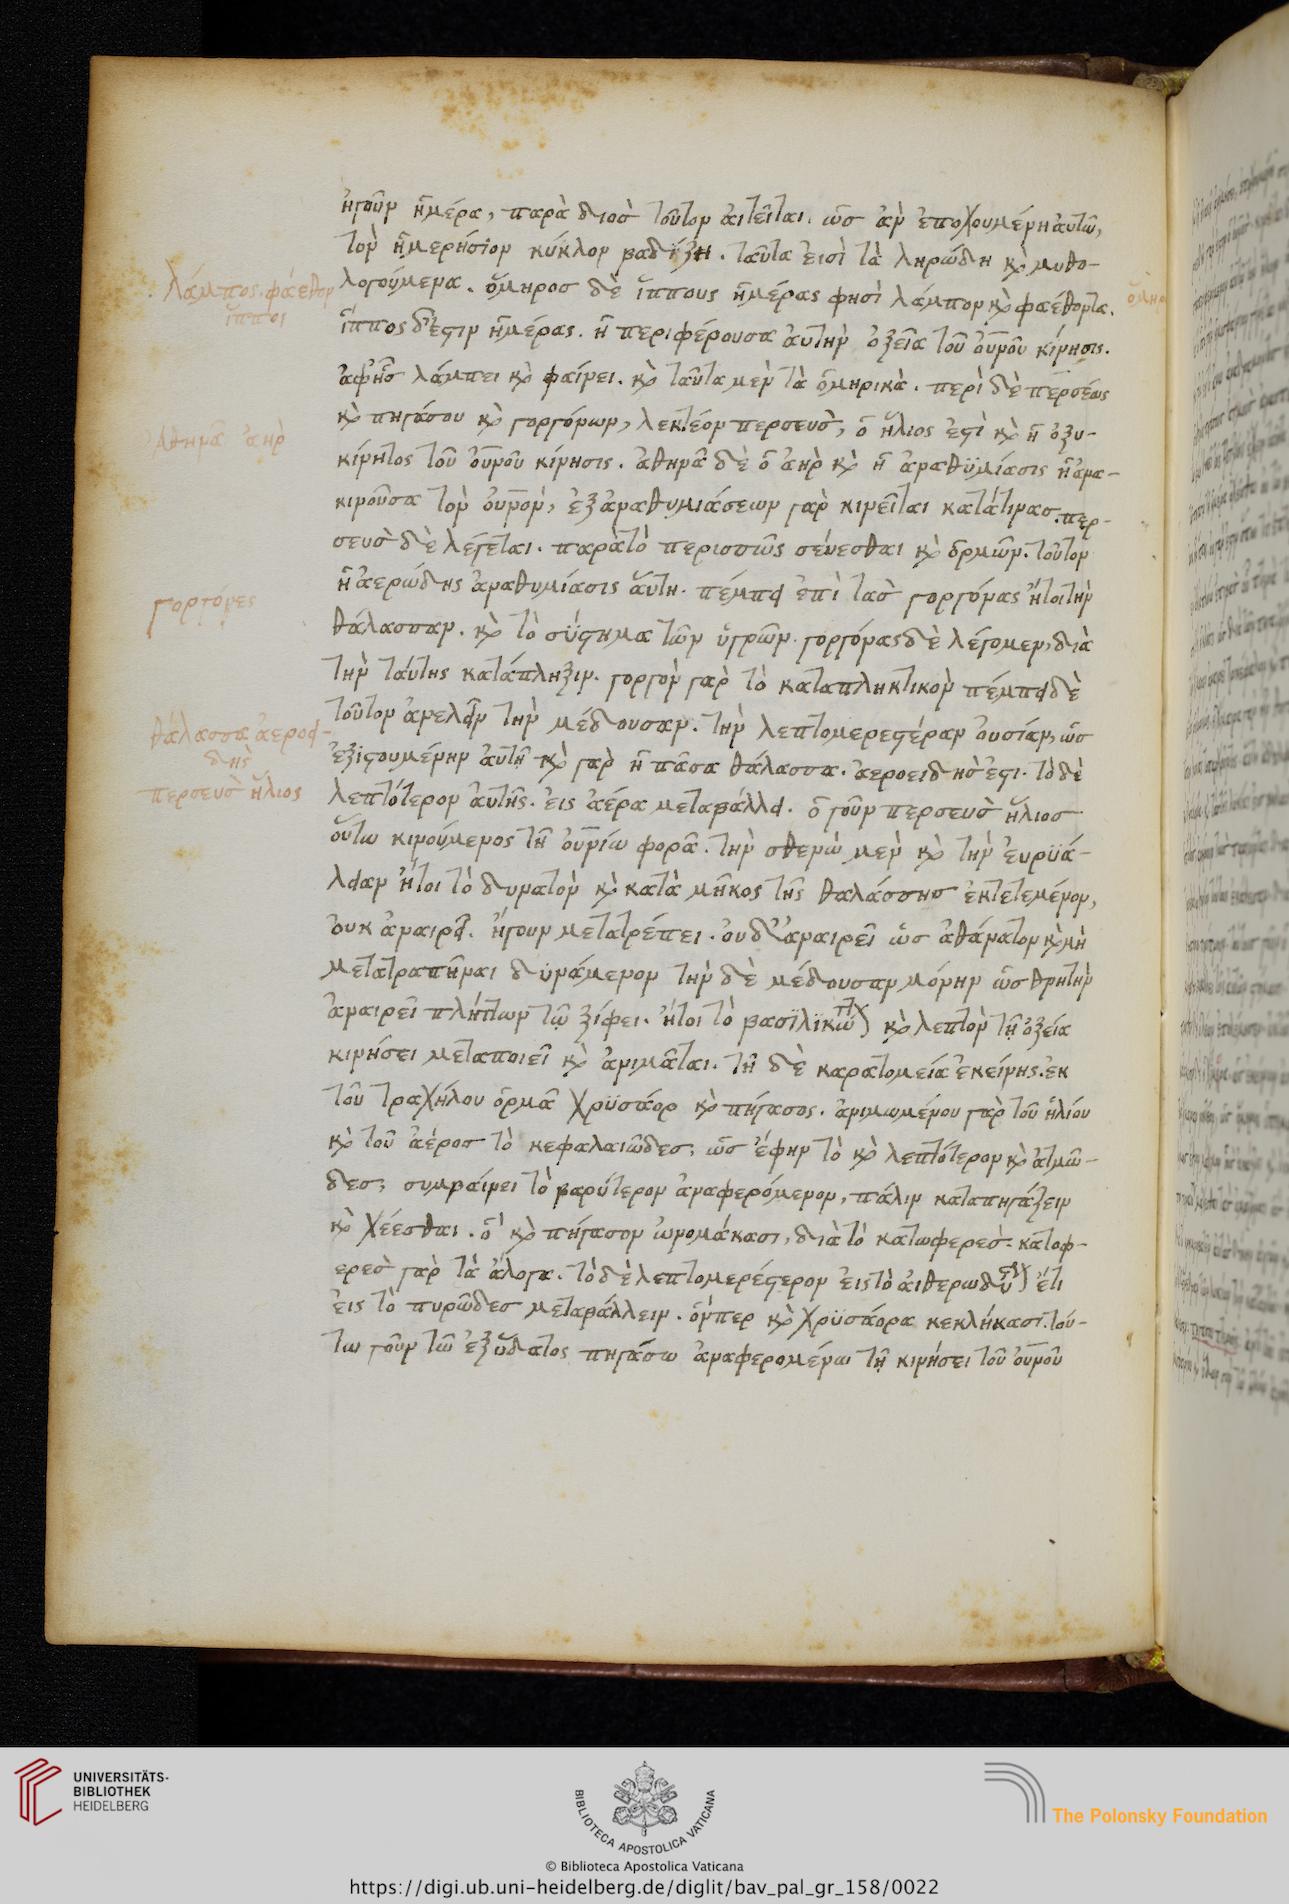 ἠγοῦν ἡμέρα, παρὰ διὸσ τοῦτον ἀιτεῖται. ὡσ ἀν ἐποχουμένη ἀυτῶ,
τὸν ἡμερήσιον κύκλον βαδίζη. ταῦτα ἐισὶ τὰ ληρώδη κ̀ μυθο-
λογούμενα. ὅμηροσ δὲ ἵππους ἡμέρας φησὶ λάμπον κ̀ φαέθοντα.
ἵππος δ' ἐστιν ἡμέρας. ἡ περιφέρουσα ἀυτὴν ὀξεῖα τοῦ ὀυνοῦ κίνησις.
ἀφῆσ λάμπει κ̀ φαίνει. κ̀ ταῦτα μὲν τὰ ὁμηρικὰ. περὶ δὲ περσέως
κ̀ πηγάσου κ̀ γοργόνων, λεκτέον περσευσ, ὁ ἥλιος ἐστὶ κ̀ ἡ ὀξυ-
κίνητος τοῦ ὀυνοῦ κίνησις. ἀθηνᾶ δὲ ὁ ἀὴρ κ̀ ἡ ἀναθϋμίασις ἡ ἀνα-
κινοῦσα τὸν ὀυνόν, ἐξ ἀναθυμιάσεων γὰρ κινεῖται κατά τινασ. περ-
σευσ δὲ λέγεται. παρὰ τὸ περισσῶς σένεσθαι κ̀ ὁρμῶν. τοῦτον
ἡ ἀερώδης ἀναθυμίασις ἅυτη. πέμπει ἐπὶ τασ γοργόνας ἤτοι τὴν
θάλασσαν. κ̀ τὸ σύστημα τῶν ὑγρῶν. γοργόνας δὲ λέγομεν, διὰ
τὴν ταύτης κατάπληξιν. γοργὸν γὰρ τὸ καταπληκτικὸν πέμπει δὲ
τοῦτον ἀνελεῖν τὴν μέδουσαν. τὴν λεπτομερεστέραν ὀυσίαν, ὡσ
ἐξιστουμένην ἀυτῆ κ̀ γὰρ ἡ πᾶσα θάλασσα. ἀεροειδήσ ἐστι. τὸ δὲ
λεπτότερον ἀυτῆς. ἐις ἀέρα μεταβάλλει. ὁ γοῦν περσευσ ἥλιοσ
ὅυτω κινούμενος τῆ ὀυνίω φορᾶ. τὴν σθενὼ μὲν κ̀ τὴν ἐυρϋά-
λειαν ἤτοι τὸ δυνατὸν κ̀ κατὰ μῆκος τῆς θαλάσσησ ἐκτετεμένον,
ὀυκ ἀναιρεῖ. ἤγουν μετατρέπει. ὀυδ' ἀναιρεῖ ὡσ ἀθάνατον κ̀ μὴ
μετατραπῆναι δϋνάμενον τὴν δὲ μέδουσαν μόνην ὡσ θνητὴν
ἀναιρεῖ πλήττων τῶ ξίφει. ἤτοι τὸ βασϊλϊκώ) κ̀ λεπτὸν τῆ ὀξεία
κινήσει μεταποιεῖ κ̀ ἀνιμᾶται. τῆ δὲ καρατομεία ἐκείνης. ἐκ
τοῦ τραχήλου ὁρμᾶ χρϋσάορ κ̀ πήγασος. ἀνιμωμένου γὰρ τοῦ ἡλίου
κ̀ τοῦ ἀέροσ τὸ κεφαλαιῶδεσ, ὡσ ἔφην τὸ κ̀ λεπτότερον κ̀ ἀτμῶ-
δεσ, συμβαίνει τὸ βαρύτερον ἀναφερόμενον, πάλιν καταπηγάζειν
κ̀ χέεσθαι. ὃ κ̀ πήγασον ὠνομάκασι, διὰ τὸ κατωφερέσ. κατοφ-
ερεσ γὰρ τὰ ἄλογα. τὸ δὲ λεπτομερέστερον ἐις τὸ ἀιθερωδ) ἔτι
ἐις τὸ πυρῶδεσ μεταβάλλειν. ὅνπερ κ̀ χρϋσάορα κεκλήκασι. τού-
τω γοῦν τῶ ἐξ ὕδατος πηγάσω ἀναφερομένω τῆ κινήσει τοῦ ὀυνοῦ
λάμπος. φαέθον
ἵπποι
ἀθηνᾶ ἀὴρ
γοργόνες
θάλασσα ἀεροει-
δὴς
περσευσ ἥλιος
ὅμηρ
UNIVERSITÄTS-
BIBLIOTHEK
HEIDELBERG
BIBLIOTECA APOSTOLICA VATICANA
The Polonsky Foundation
© Biblioteca Apostolica Vaticana
https://digi.ub.uni-heidelberg.de/diglit/bav_pal_gr_158/0022